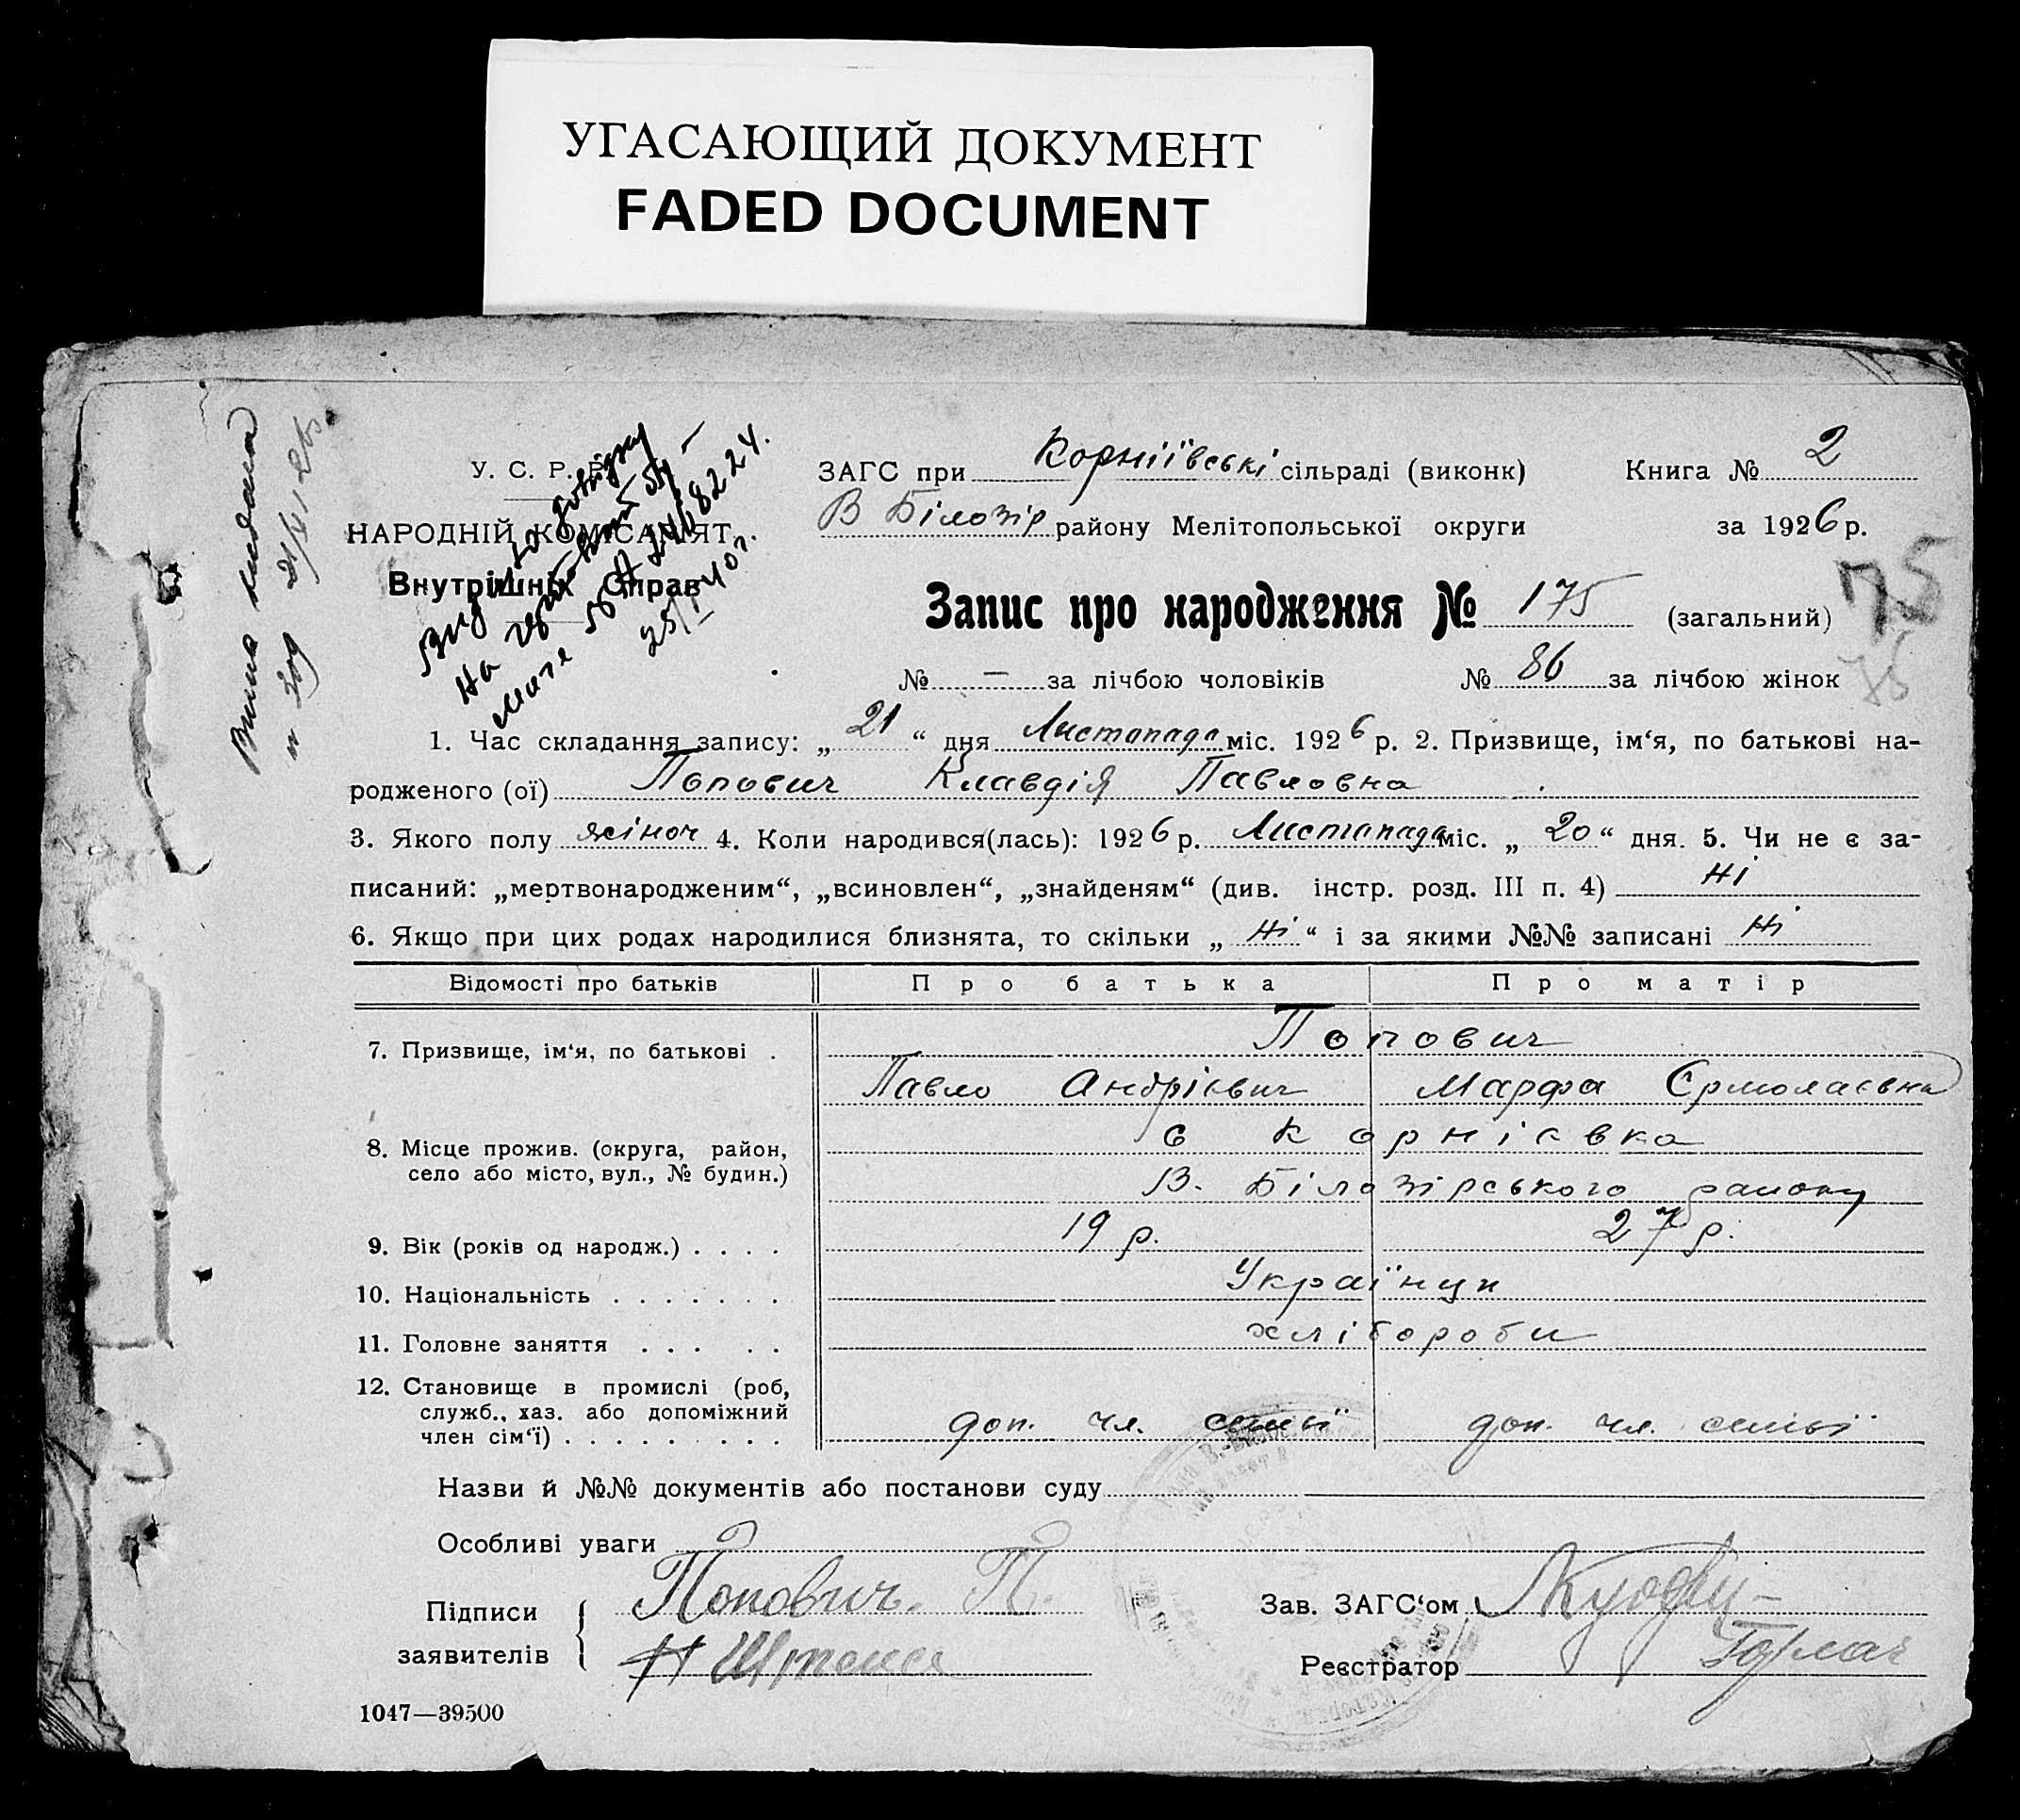 УГАСАЮЩИЙ ДОКУМЕНТ
FADED DOCUMENT
У. С. Р. Р.
НАРОДНІЙ КОМІСАРІЯТ
Внутрішніх Справ
ЗАГС при Корніївські сільраді (виконк) Книга № 2
В Білозір району Мелітопольської округи за 1926 р.
Запис про народження № 175 (загальний)
175
№ — за лічбою чоловіків № 86 за лічбою жінок
1. Час складання запису: „21“ дня Листопада міс. 1926 р. 2. Призвище, ім‘я, по батькові на-
родженого (ої) Попович Клавдія Павловна
3. Якого полу жіноч 4. Коли народився(лась): 1926 р. Листопада міс. „20“ дня. 5. Чи не є за-
писаний: „мертвонародженим“, „всиновлен“, „знайденям“ (див. інстр. розд. III п. 4) Ні
6. Якщо при цих родах народилися близнята, то скільки „Ні“ і за якими №№ записані Ні
Відомості про батьків Про батька Про матір
7. Призвище, ім‘я, по батькові . Попович
Павло Андрієвич Марфа Єрмолаєвна
8. Місце прожив. (округа, район, с Корнієвка
село або місто, вул., № будин.) В. Білозірського району
9. Вік (років од народж.) . . . . 19 р. 27 р.
10. Національність . . . . . . . Українци
11. Головне заняття . . . . . хлібороби
12. Становище в промислі (роб,
служб., хаз. або допоміжний
член сім‘ї) . . . . . . . . . доп. чл. семьї доп. чл. семьї
Назви й №№ документів або постанови суду
Особливі уваги
Підписи Попович. П. Зав. ЗАГС‘ом
заявителів Реєстратор
1047—39500